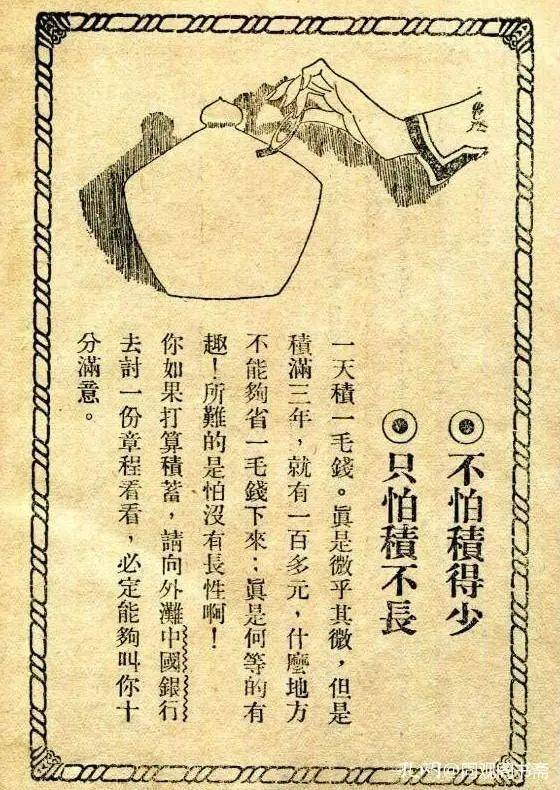 ◉不怕積得少
◉只怕積不長
一天積一毛錢。眞是微乎其微，但是
積滿三年，就有一百多元，什麼地方
不能夠省一毛錢下來；眞是何等的有
趣！所難的是怕沒有長性啊！
你如果打算積蓄，請向外灘中國銀行
去討一份章程看看，必定能夠叫你十
分滿意。